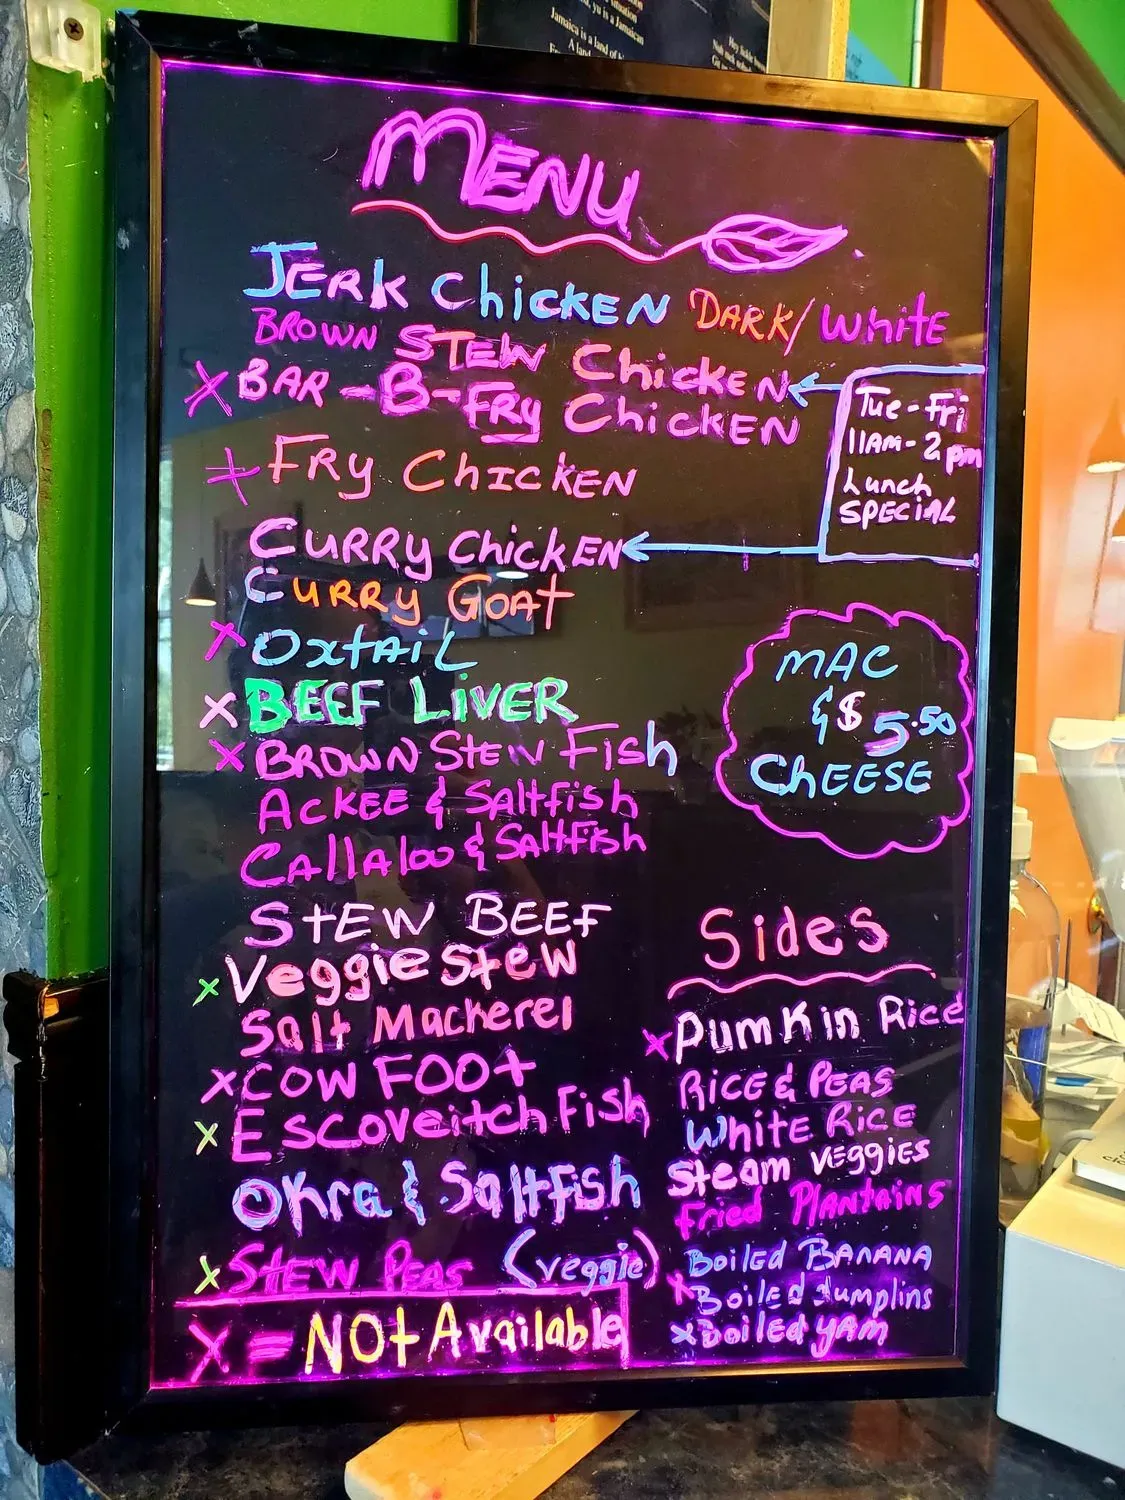 Jamaica is a land of
A land
MENU
JERK ChicKEN DARK/White
BROWN STEW ChicKEN
X BAR-B-FRY ChicKEN
X FRY ChICKEN
CURRY ChicKEN
CURRY GOAT
X OxtAiL
X BEEF LiVER
X BROWN StEW Fish
ACKEE & SAltfish
CAllAloo & SAltFish
StEW BEEF
X Veggie Stew
Salt Mackerel
X COW FOOt
X Escoveitch Fish
Okra & Saltfish
X StEW PEAS (veggie)
X = NOt Available
Tue-Fri
11AM-2pm
Lunch
SPECIAL
MAC
& $5.50
ChEESE
Sides
X Pumkin Rice
RicE & PEAS
White RicE
Steam VEggies
Fried PlAntains
Boiled BANANA
X Boiled dumplins
X Boiled yam